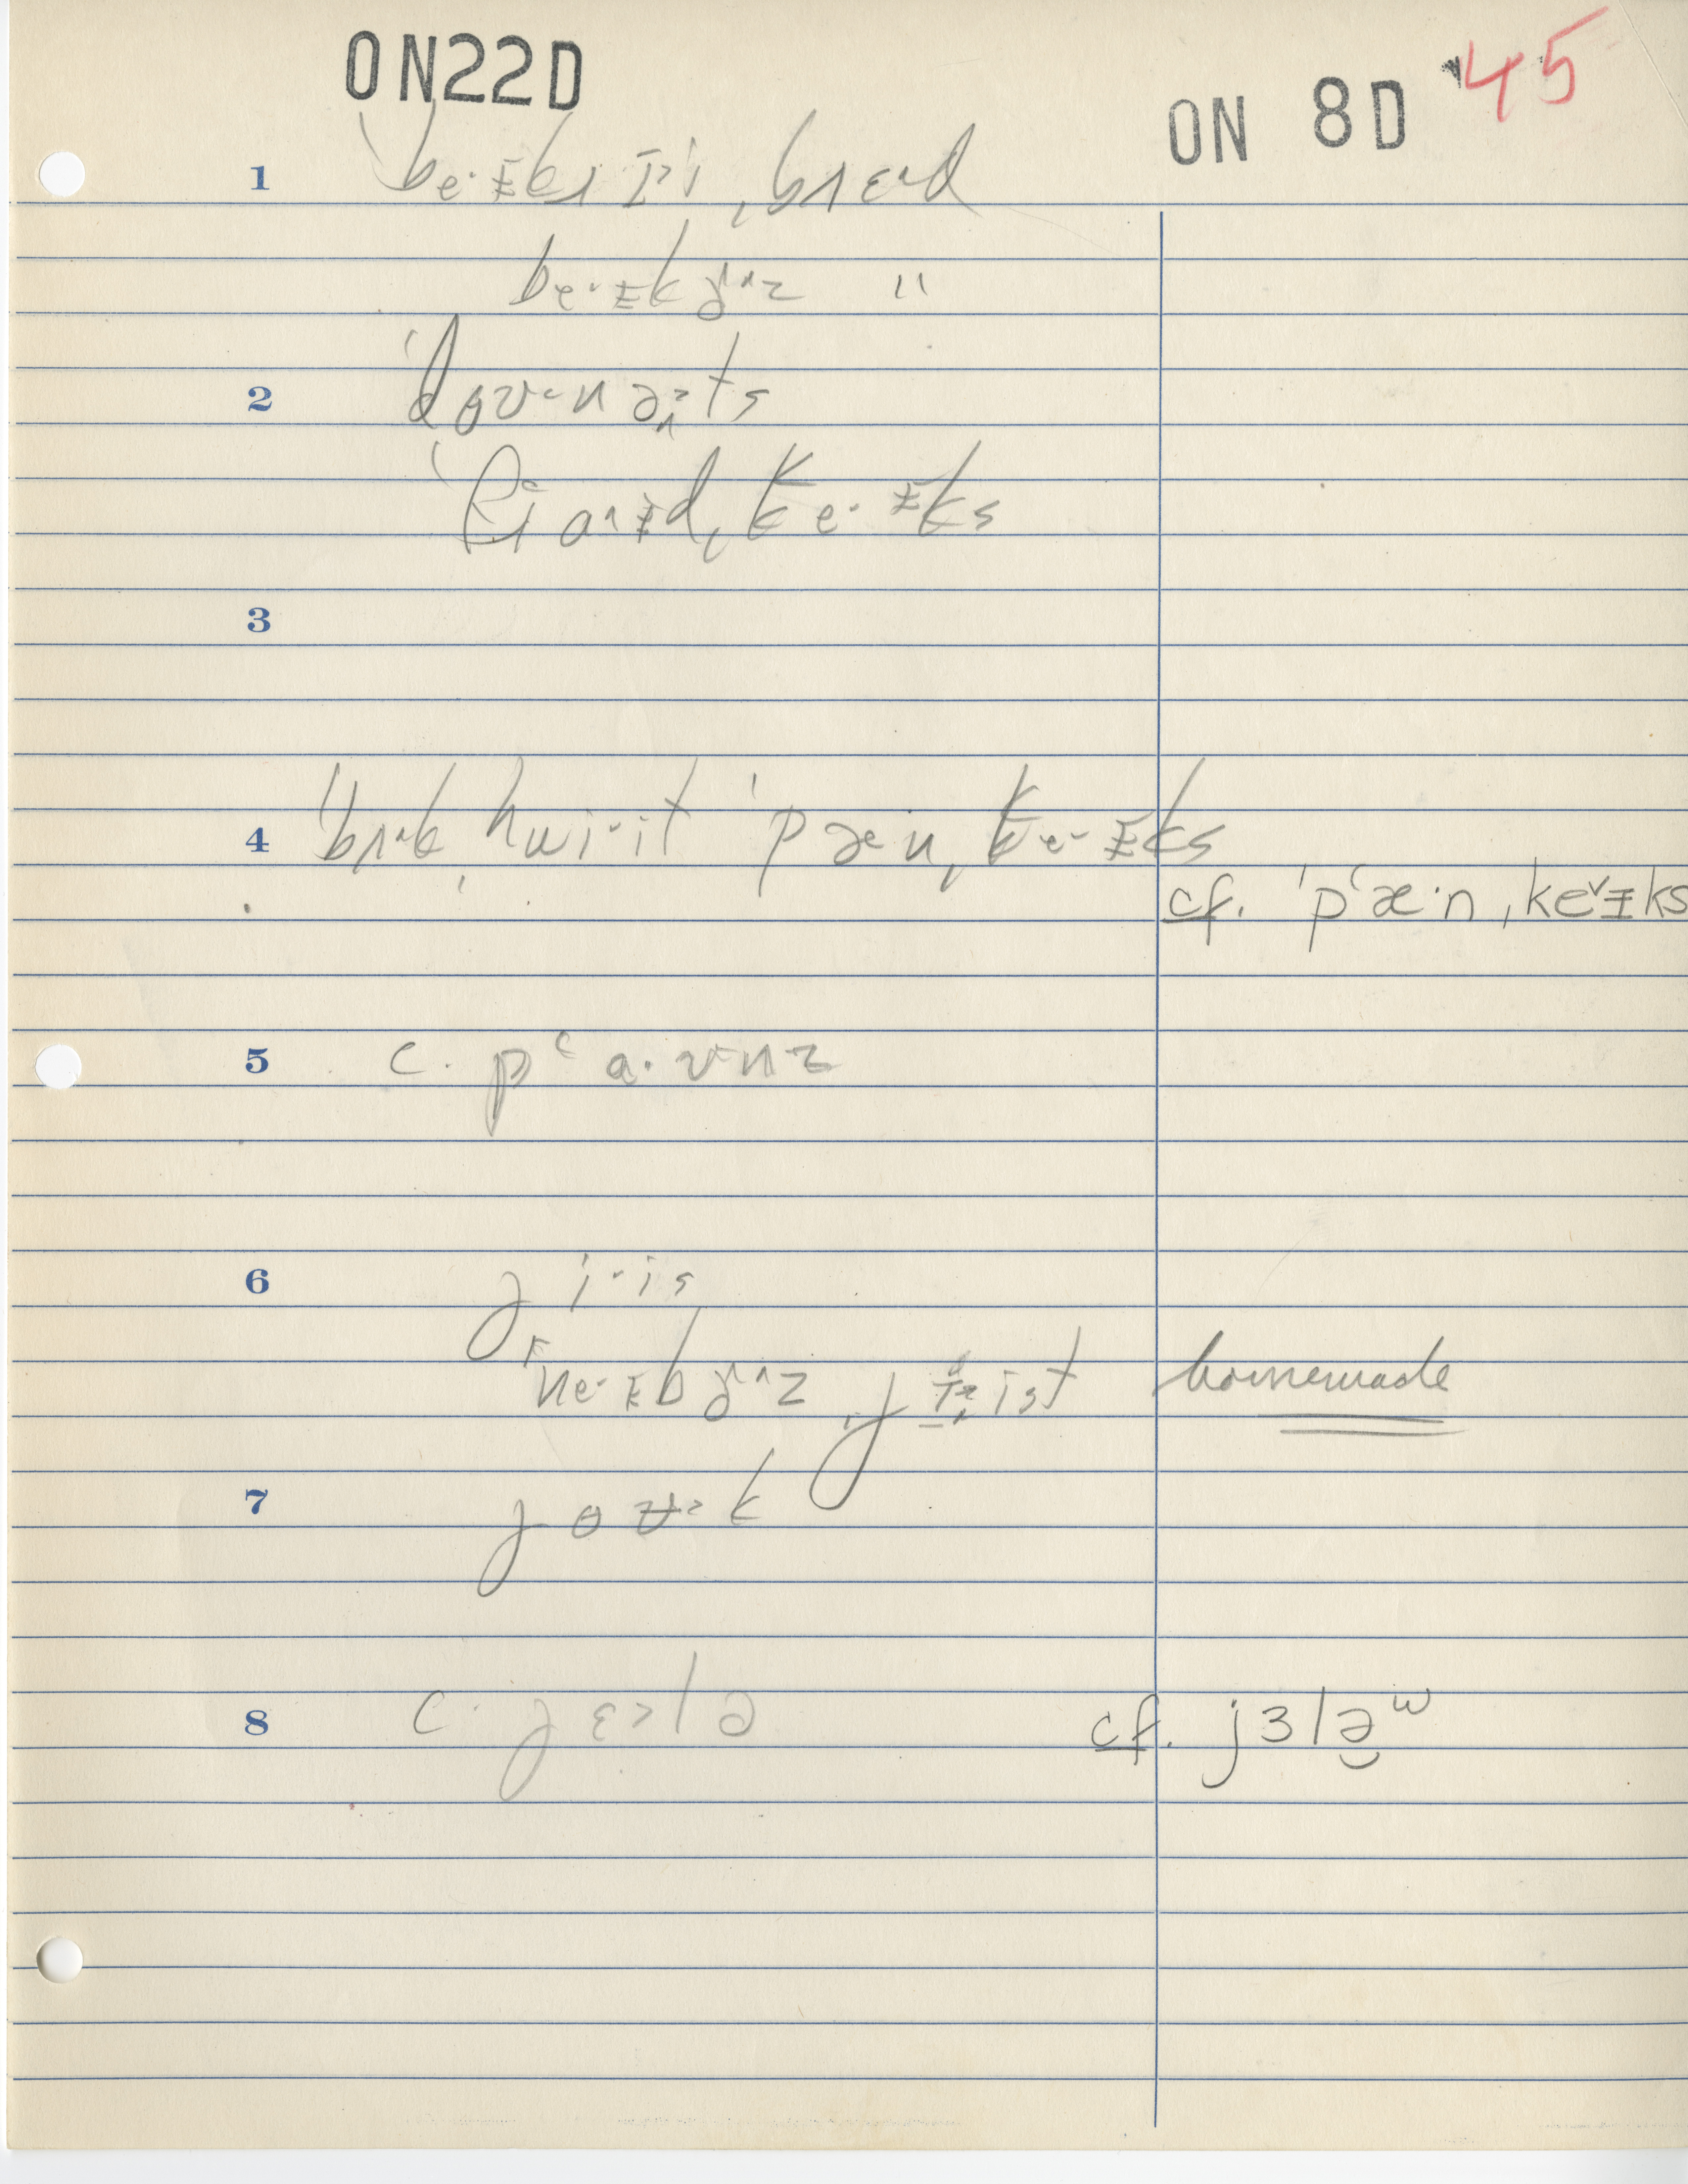 ON22D
ON 8D 45
1 ˈbe·ɪkɹɪˈi ˌbɹɛ^d
be·ɪkɚ^z "
2 ˈdoʊ·nə>ts
ˈfɹa^ɪd ˌke·ɪks
3
4 ˈbʌ^k ˌhwi·it ˈpæ·n ˌke·ɪks
cf. ˈpʽæ·n ˌkeᵛɪks
5 c. pʽa·ʊnz
6 ji·is
ˈne·ɪbɚ^z ˌjist homemade
7 joʊ>k
8 c. jɛ>lə
cf. jɜlə̯ʷ